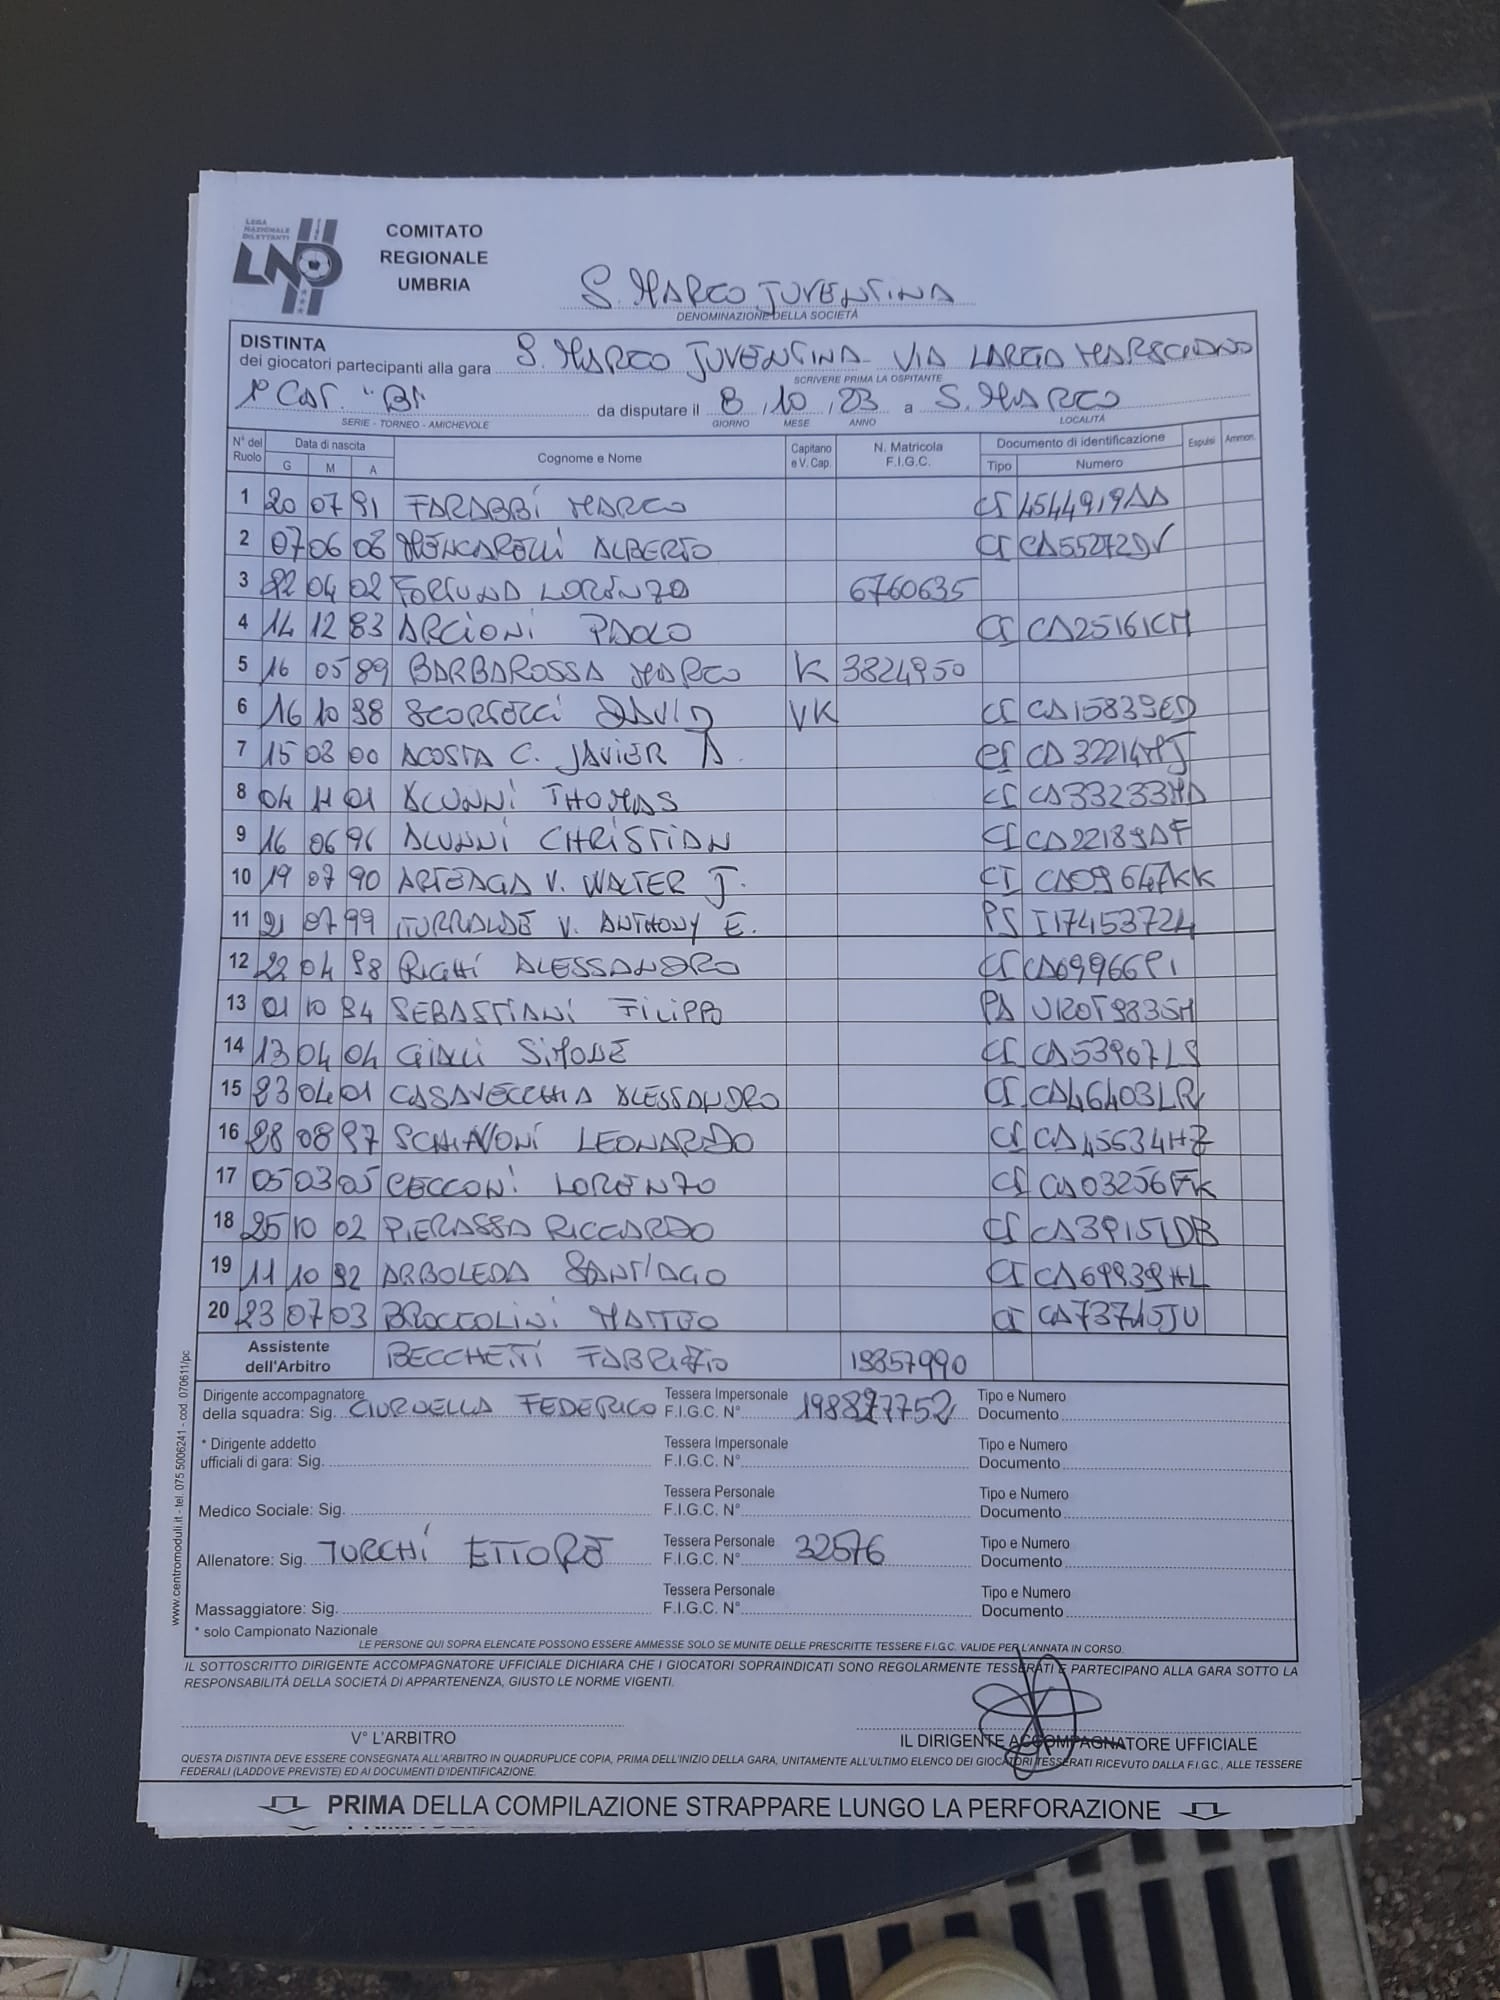 LEGA
NAZIONALE
DILETTANTI
LND
COMITATO
REGIONALE
UMBRIA
S. MARCO JUVENTINA
DENOMINAZIONE DELLA SOCIETÀ
DISTINTA
dei giocatori partecipanti alla gara S. MARCO JUVENTINA - VIA LARGA MARSCIANO
SCRIVERE PRIMA LA OSPITANTE
1ª CAT. "B" da disputare il 8 / 10 / 23 a S. MARCO
SERIE - TORNEO - AMICHEVOLE GIORNO MESE ANNO LOCALITÀ
N° del Ruolo Data di nascita G M A Cognome e Nome Capitano e V. Cap. N. Matricola F.I.G.C. Documento di identificazione Tipo Numero Espulsi Ammon.
1 20 07 91 FARABBI MARCO CI 4544919AA
2 07 06 06 ALBERTO CI CA55272DV
3 22 04 02 FORTUNA LORENZO 6760635
4 14 12 83 ARCIONI PAOLO CI CA25161CM
5 16 05 89 BARBAROSSA MARCO K 3824950
6 16 10 98 DAVID VK CI CA15839ED
7 15 03 00 ACOSTA C. JAVIER A. CI CA32214MJ
8 04 11 01 ALUNNI THOMAS CI CA33233MA
9 16 06 96 ALUNNI CHRISTIAN CI CA22189AF
10 19 07 90 ARTEAGA V. WALTER J. CI CA09647KK
11 21 07 99 ITURRALDE V. ANTHONY E. PS I17453724
12 22 04 98 RIGHI ALESSANDRO CI CA69966PI
13 01 10 94 SEBASTIANI FILIPPO PA U120T9835M
14 13 04 04 GIGLI SIMONE CI CA53907LS
15 23 04 01 CASAVECCHIA ALESSANDRO CI CA46403LR
16 28 08 97 SCHIAVONI LEONARDO CI CA45634HZ
17 05 03 05 CECCONI LORENZO CI CA03256FK
18 25 10 02 PIERASSA RICCARDO CI CA39151DB
19 11 10 92 ARBOLEDA SANTIAGO CI CA69939HL
20 23 07 03 BROCCOLINI MATTEO CI CA73745JU
Assistente dell'Arbitro BECCHETTI FABRIZIO 19857990
Dirigente accompagnatore Tessera Impersonale Tipo e Numero
della squadra: Sig. CIURNELLA FEDERICO F.I.G.C. N° 198827752 Documento
* Dirigente addetto Tessera Impersonale Tipo e Numero
ufficiali di gara: Sig. F.I.G.C. N° Documento
Tessera Personale Tipo e Numero
Medico Sociale: Sig. F.I.G.C. N° Documento
Tessera Personale Tipo e Numero
Allenatore: Sig. TURCHI ETTORE F.I.G.C. N° 32576 Documento
Tessera Personale Tipo e Numero
Massaggiatore: Sig. F.I.G.C. N° Documento
* solo Campionato Nazionale
LE PERSONE QUI SOPRA ELENCATE POSSONO ESSERE AMMESSE SOLO SE MUNITE DELLE PRESCRITTE TESSERE F.I.G.C. VALIDE PER L'ANNATA IN CORSO.
IL SOTTOSCRITTO DIRIGENTE ACCOMPAGNATORE UFFICIALE DICHIARA CHE I GIOCATORI SOPRAINDICATI SONO REGOLARMENTE TESSERATI E PARTECIPANO ALLA GARA SOTTO LA
RESPONSABILITÀ DELLA SOCIETÀ DI APPARTENENZA, GIUSTO LE NORME VIGENTI.
V° L'ARBITRO IL DIRIGENTE ACCOMPAGNATORE UFFICIALE
QUESTA DISTINTA DEVE ESSERE CONSEGNATA ALL'ARBITRO IN QUADRUPLICE COPIA, PRIMA DELL'INIZIO DELLA GARA, UNITAMENTE ALL'ULTIMO ELENCO DEI GIOCATORI TESSERATI RICEVUTO DALLA F.I.G.C., ALLE TESSERE
FEDERALI (LADDOVE PREVISTE) ED AI DOCUMENTI D'IDENTIFICAZIONE.
PRIMA DELLA COMPILAZIONE STRAPPARE LUNGO LA PERFORAZIONE
www.centromoduli.it - tel. 075 5006241 - cod. 070611/pc